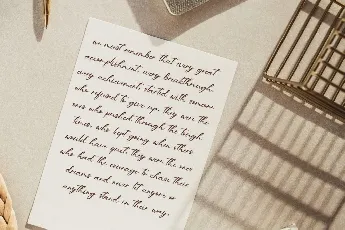 we must remember that every great
accomplishment, every breakthrough,
every achievement, started with someone
who refused to give up. they were the
ones who pushed through the tough
times, who kept going when others
would have quit. they were the ones
who had the courage to chase their
dreams and never let anyone or
anything stand in their way.